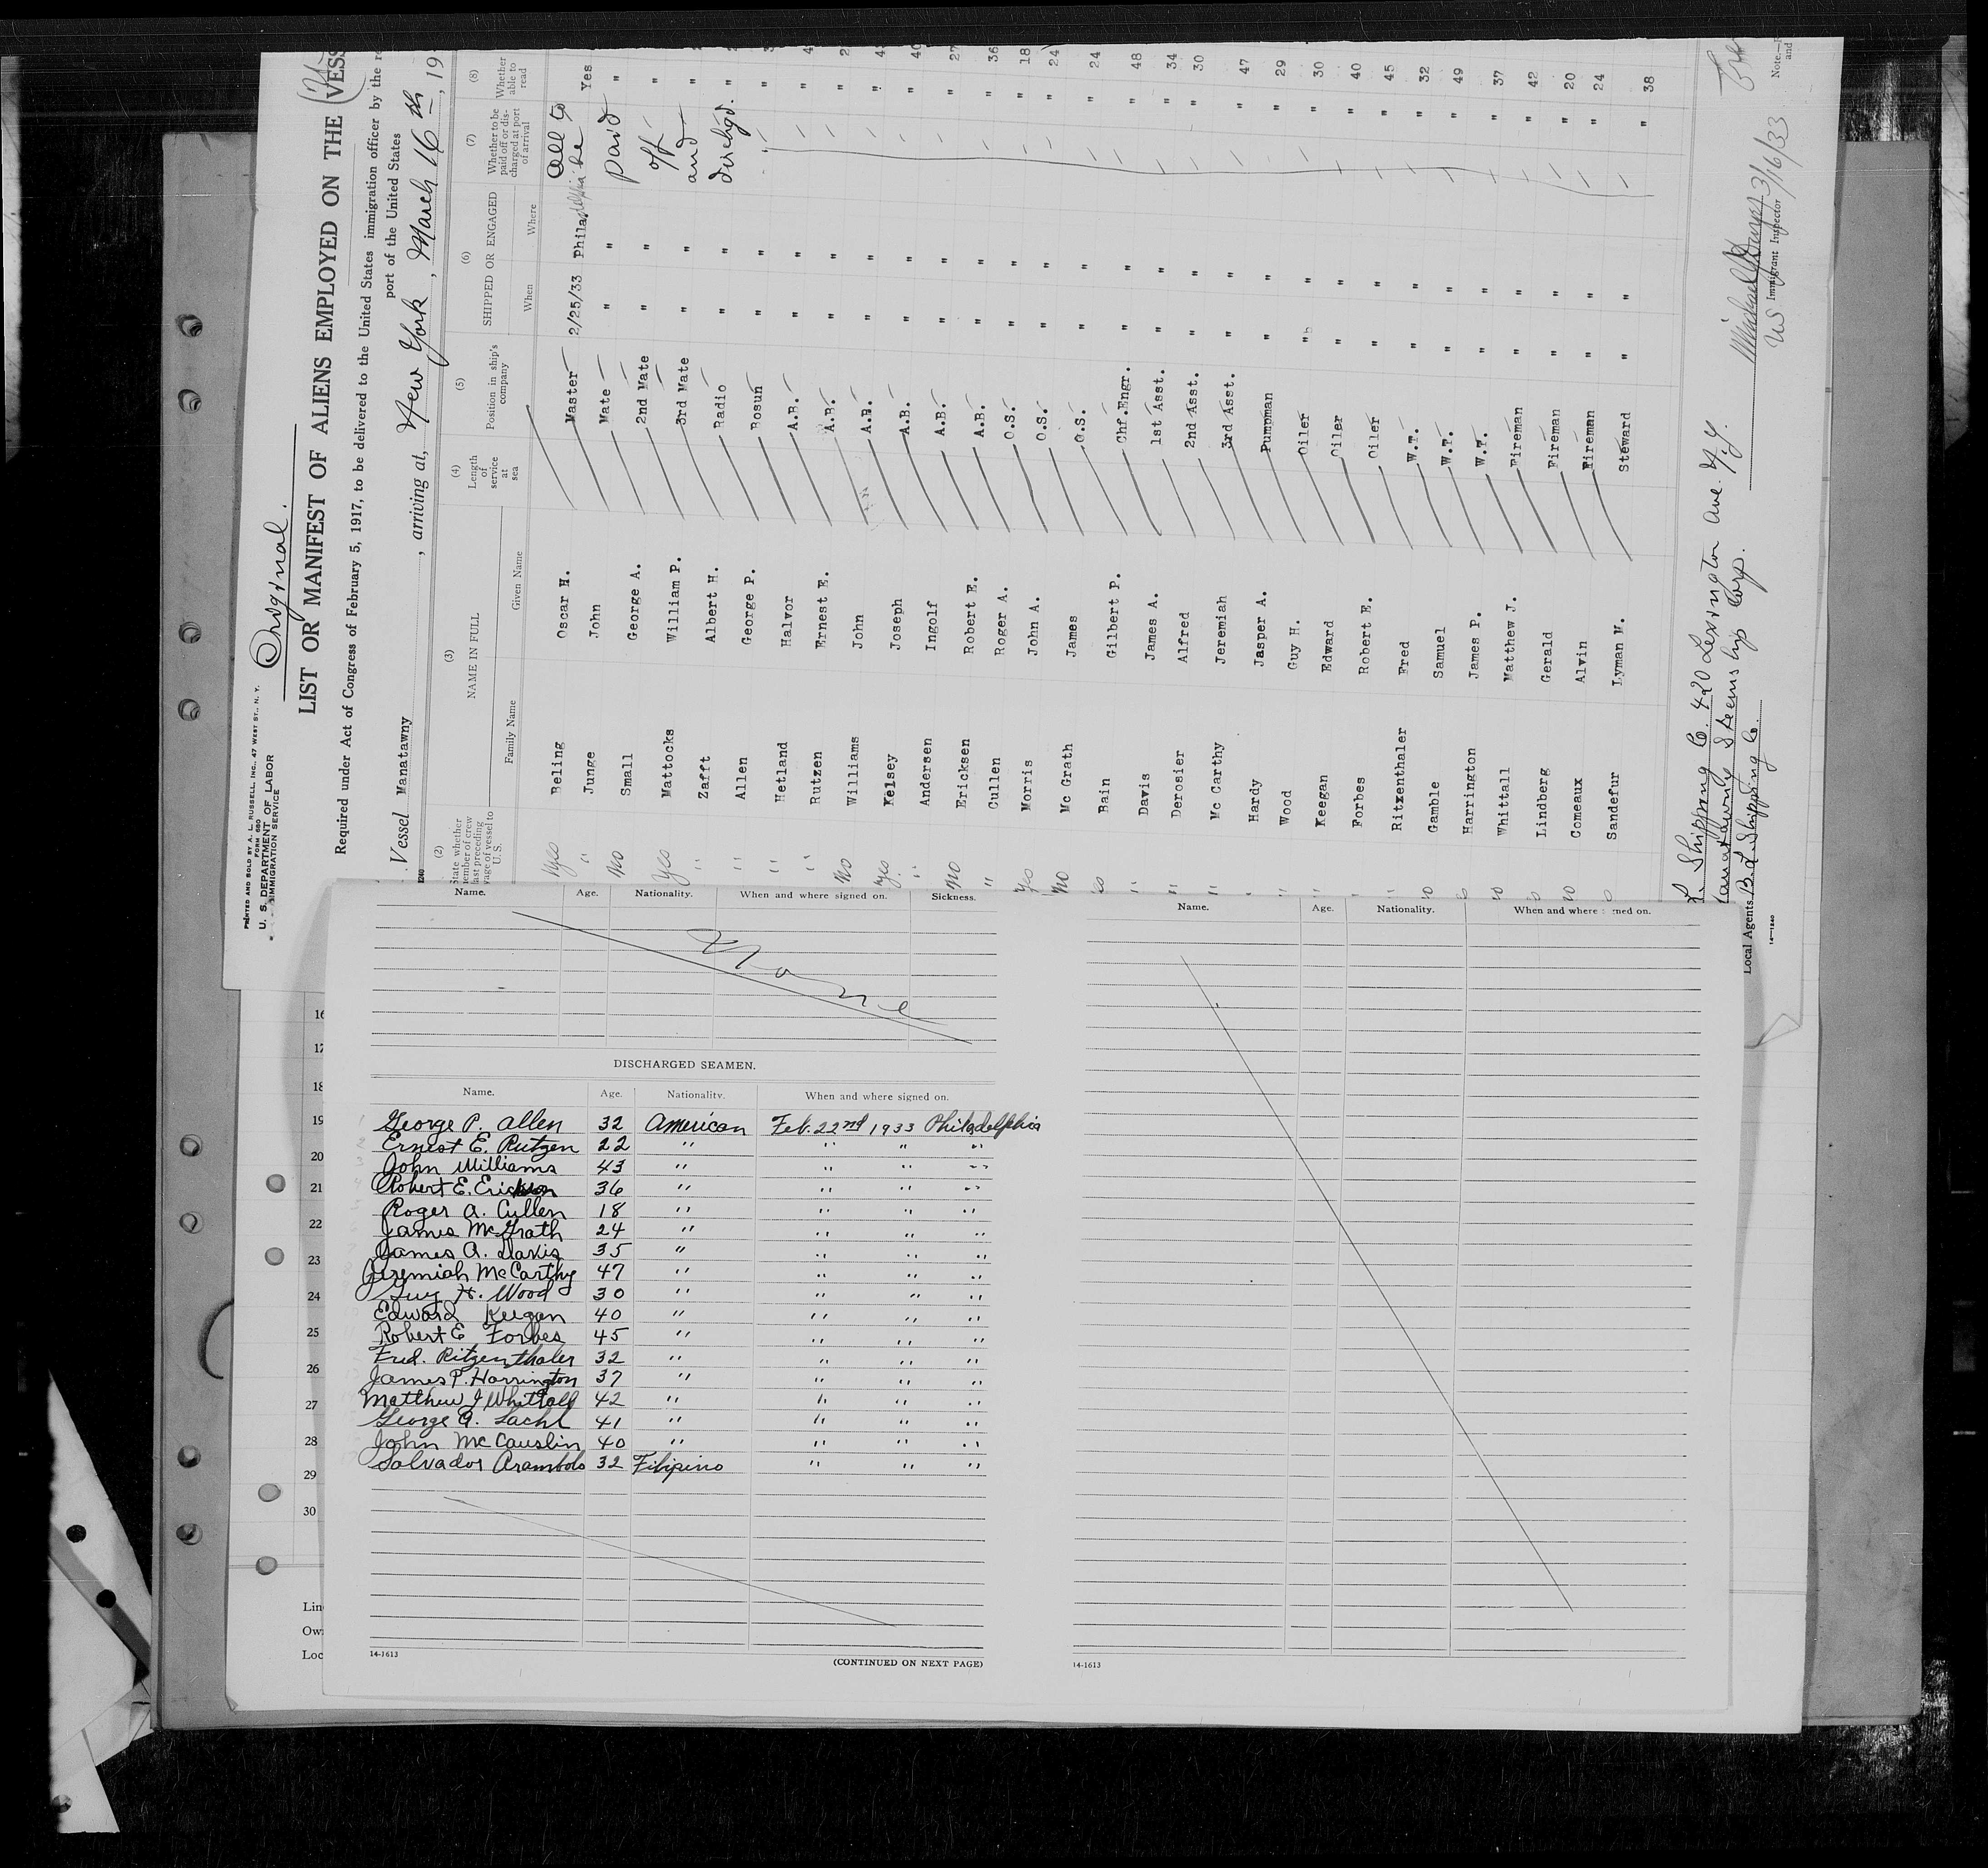 Original.
PRINTED AND SOLD BY A. L. RUSSELL, INC., 47 WEST ST., N. Y.
FORM 680
U. S. DEPARTMENT OF LABOR
IMMIGRATION SERVICE
LIST OR MANIFEST OF ALIENS EMPLOYED ON THE VESS
Required under Act of Congress of February 5, 1917, to be delivered to the United States immigration officer by the re
port of the United States
Vessel Manatawny, arriving at, New York, March 16th, 19
(2) (3) (4) (5) (6) (7) (8)
State whether member of crew last preceding voyage of vessel to U.S. NAME IN FULL Length of service at sea Position in ship's company SHIPPED OR ENGAGED Whether to be paid off or discharged at port of arrival Whether able to read
Family Name Given Name When Where
Yes Beling Oscar H. Master 2/25/33 Philadelphia All to be Yes
" Junge John Mate " " paid "
No Small George A. 2nd Mate " " off "
Yes Mattocks William P. 3rd Mate " " and "
" Zafft Albert H. Radio " " dischg'd. "
" Allen George P. Bosun " " "
" Hetland Halvor A.B. " " "
" Rutzen Ernest E. A.B. " " "
No Williams John A.B. " " "
Yes Kelsey Joseph A.B. " " " 40
" Andersen Ingolf A.B. " " " 27
No Ericksen Robert E. A.B. " " " 36
" Cullen Roger A. O.S. " " " 18
Yes Morris John A. O.S. " " " 24
No Mc Grath James O.S. " " " 24
Bain Gilbert P. Chf.Engr. " " " 48
" Davis James A. 1st Asst. " " " 34
" Derosier Alfred 2nd Asst. " " " 30
" Mc Carthy Jeremiah 3rd Asst. " " " 47
Hardy Jasper A. Pumpman " " " 29
" Wood Guy H. Oiler " " " 30
" Keegan Edward Oiler " " " 40
Forbes Robert E. Oiler " " " 45
" Ritzenthaler Fred W.T. " " " 32
Gamble Samuel W.T. " " " 49
Harrington James P. W.T. " " " 37
Whittall Matthew J. Fireman " " " 42
Lindberg Gerald Fireman " " " 20
Comeaux Alvin Fireman " " " 24
Sandefur Lyman M. Steward " " " 38
L. Shipping Co. 420 Lexington Ave. N.Y.
Manatawny Steamship Corp.
Local Agents B.L. Shipping Co.
3/16/33
US Immigrant Inspector
Note.—
and
14—1240
Name. Age. Nationality. When and where signed on. Sickness.
None
DISCHARGED SEAMEN.
Name. Age. Nationality. When and where signed on.
George P. Allen 32 American Feb. 22nd 1933 Philadelphia
Ernest E. Rutzen 22 " " " "
John Williams 43 " " " "
Robert E. Erickson 36 " " " "
Roger A. Cullen 18 " " " "
James McGrath 24 " " " "
James A. Davis 35 " " " "
Jeremiah McCarthy 47 " " " "
Guy H. Wood 30 " " " "
Edward Keegan 40 " " " "
Robert E Forbes 45 " " " "
Fred. Ritzenthaler 32 " " " "
James P. Harrington 37 " " " "
Matthew J Whittall 42 " " " "
George A. Lachl 41 " " " "
John McCauslin 40 " " " "
Salvador Arambolo 32 Filipino " " "
14-1613
(CONTINUED ON NEXT PAGE)
Name. Age. Nationality. When and where signed on.
14-1613
16
17
18
19
20
21
22
23
24
25
26
27
28
29
30
Lin
Ow
Loc